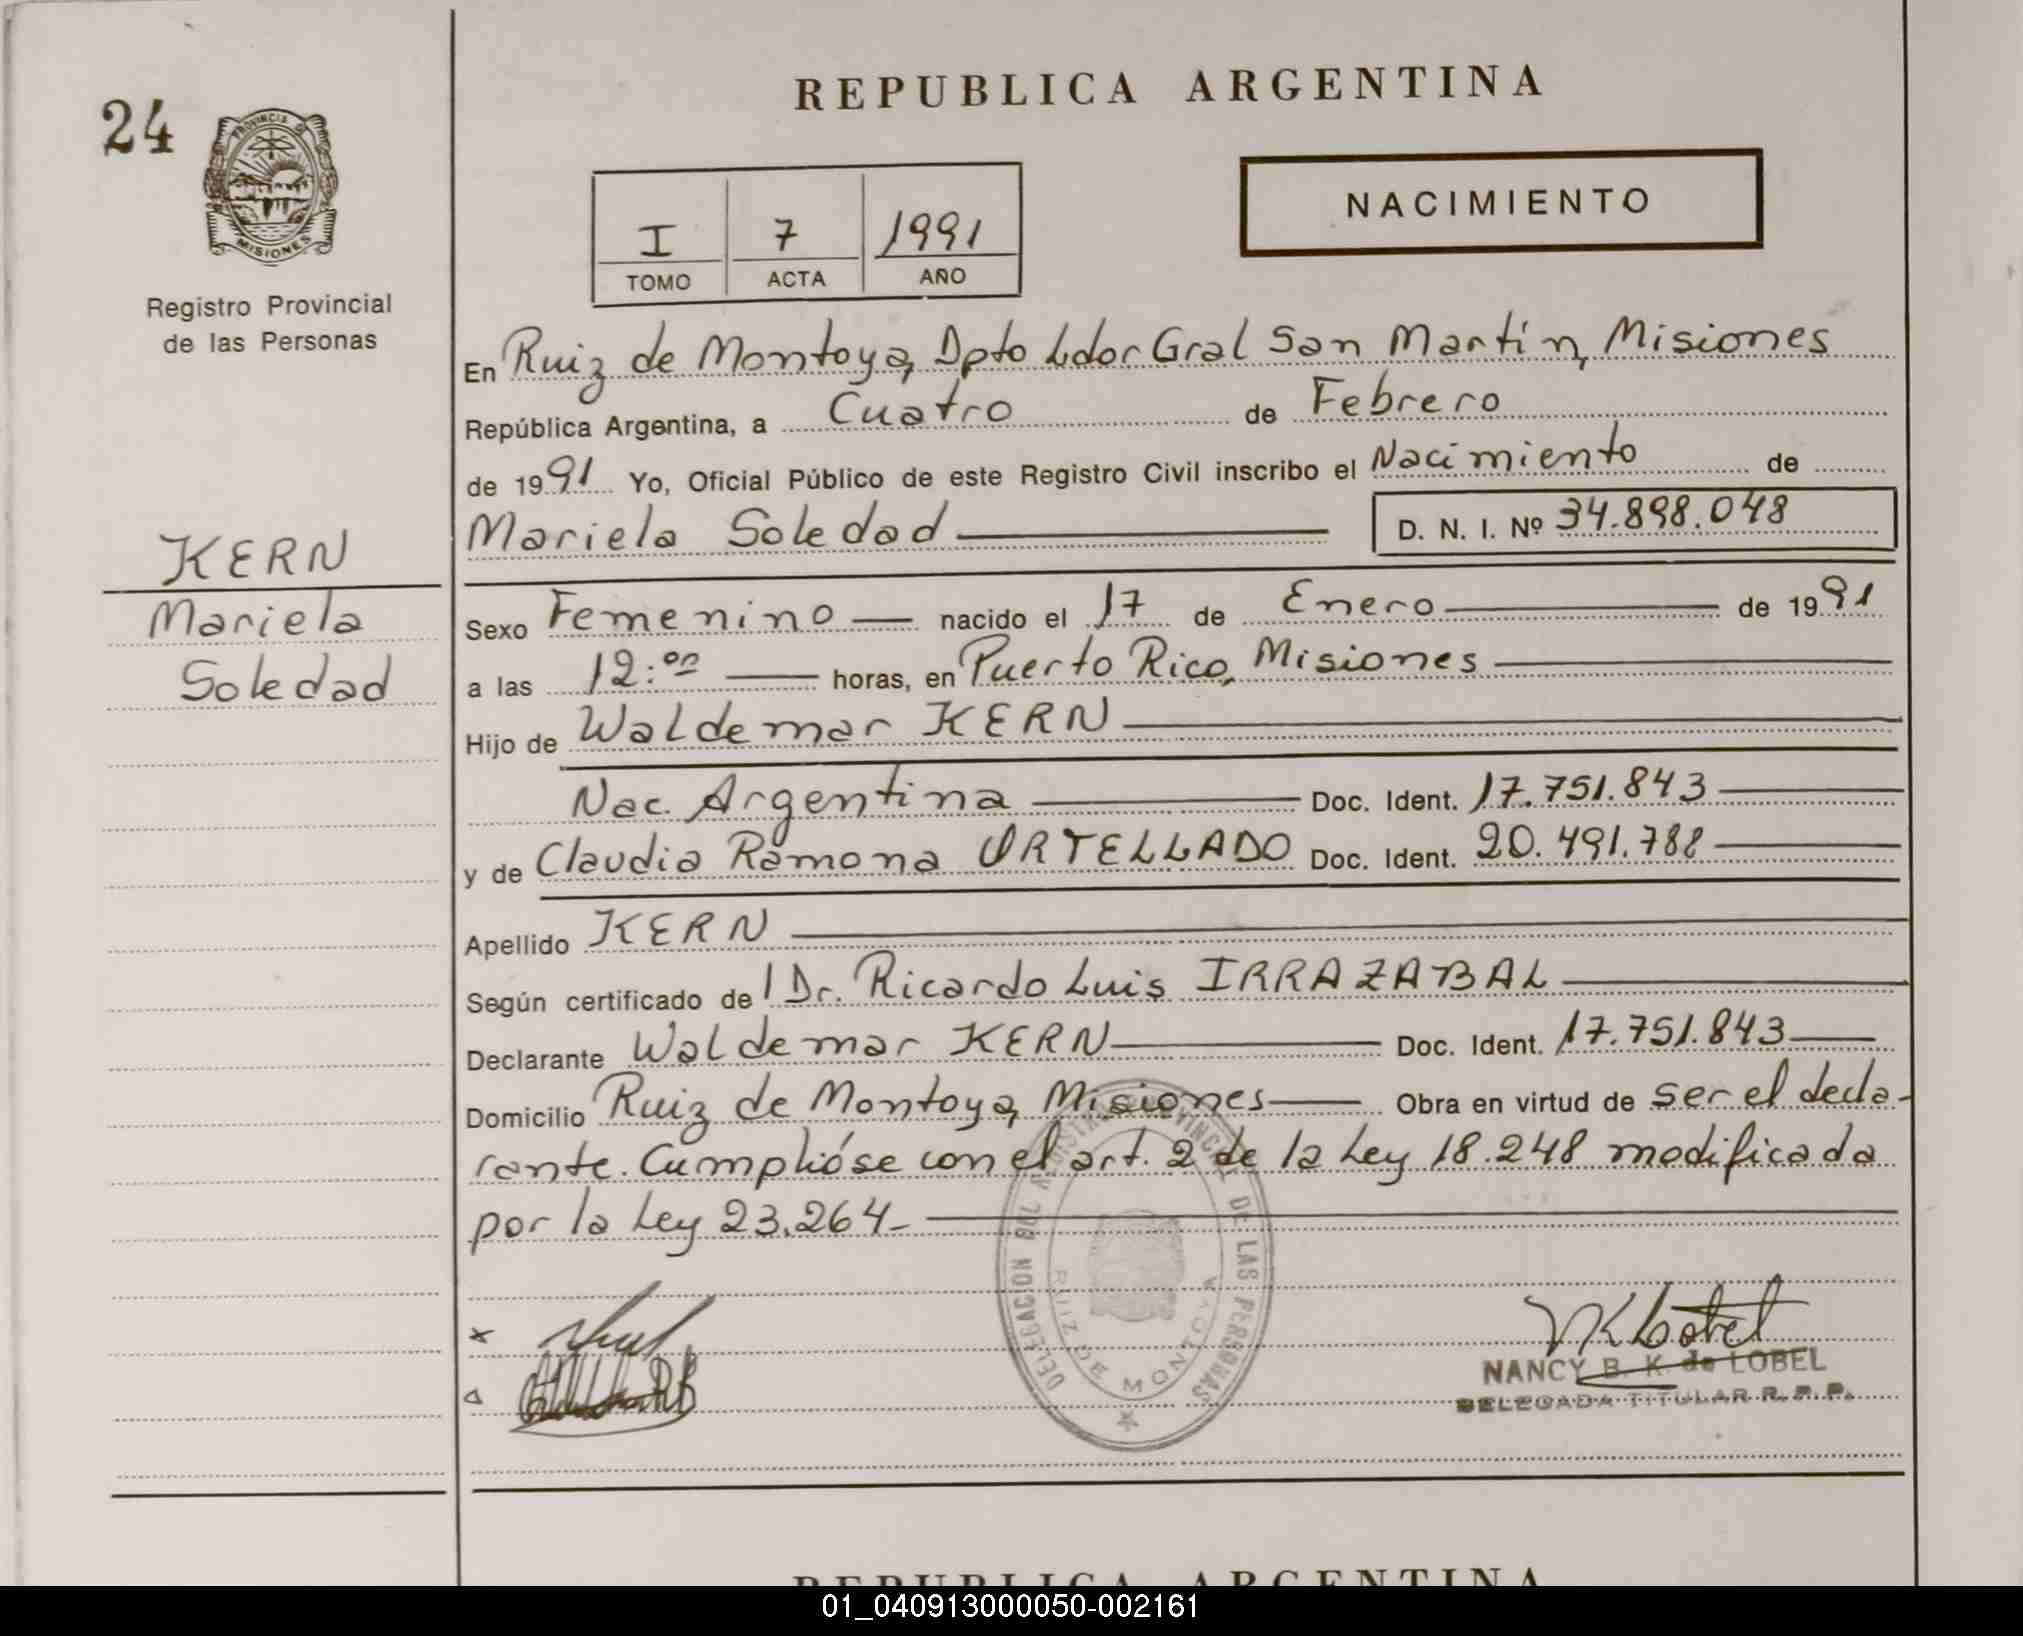 REPUBLICA ARGENTINA
24
PROVINCIA DE
MISIONES
NACIMIENTO
I 7 1991
TOMO ACTA AÑO
Registro Provincial
de las Personas
En Ruiz de Montoya, Dpto Ldor Gral San Martín, Misiones
República Argentina, a Cuatro de Febrero
de 1991 Yo, Oficial Público de este Registro Civil inscribo el Nacimiento de
Mariela Soledad D. N. I. Nº 34.898.048
KERN
Mariela
Soledad
Sexo Femenino nacido el 17 de Enero de 1991
a las 12:00 horas, en Puerto Rico, Misiones
Hijo de Waldemar KERN
Nac. Argentina Doc. Ident. 17.751.843
y de Claudia Ramona ORTELLADO Doc. Ident. 20.491.788
Apellido KERN
Según certificado de l Dr. Ricardo Luis IRRAZABAL
Declarante Waldemar KERN Doc. Ident. 17.751.843
Domicilio Ruiz de Montoya, Misiones Obra en virtud de ser el decla-
rante. Cumplióse con el art. 2 de la Ley 18.248 modificada
por la Ley 23.264-
DELEGACION DEL REGISTRO PROVINCIAL DE LAS PERSONAS
RUIZ DE MONTOYA
NANCY B. K. de LOBEL
DELEGADA TITULAR R. P. P.
REPUBLICA ARGENTINA
01_040913000050-002161